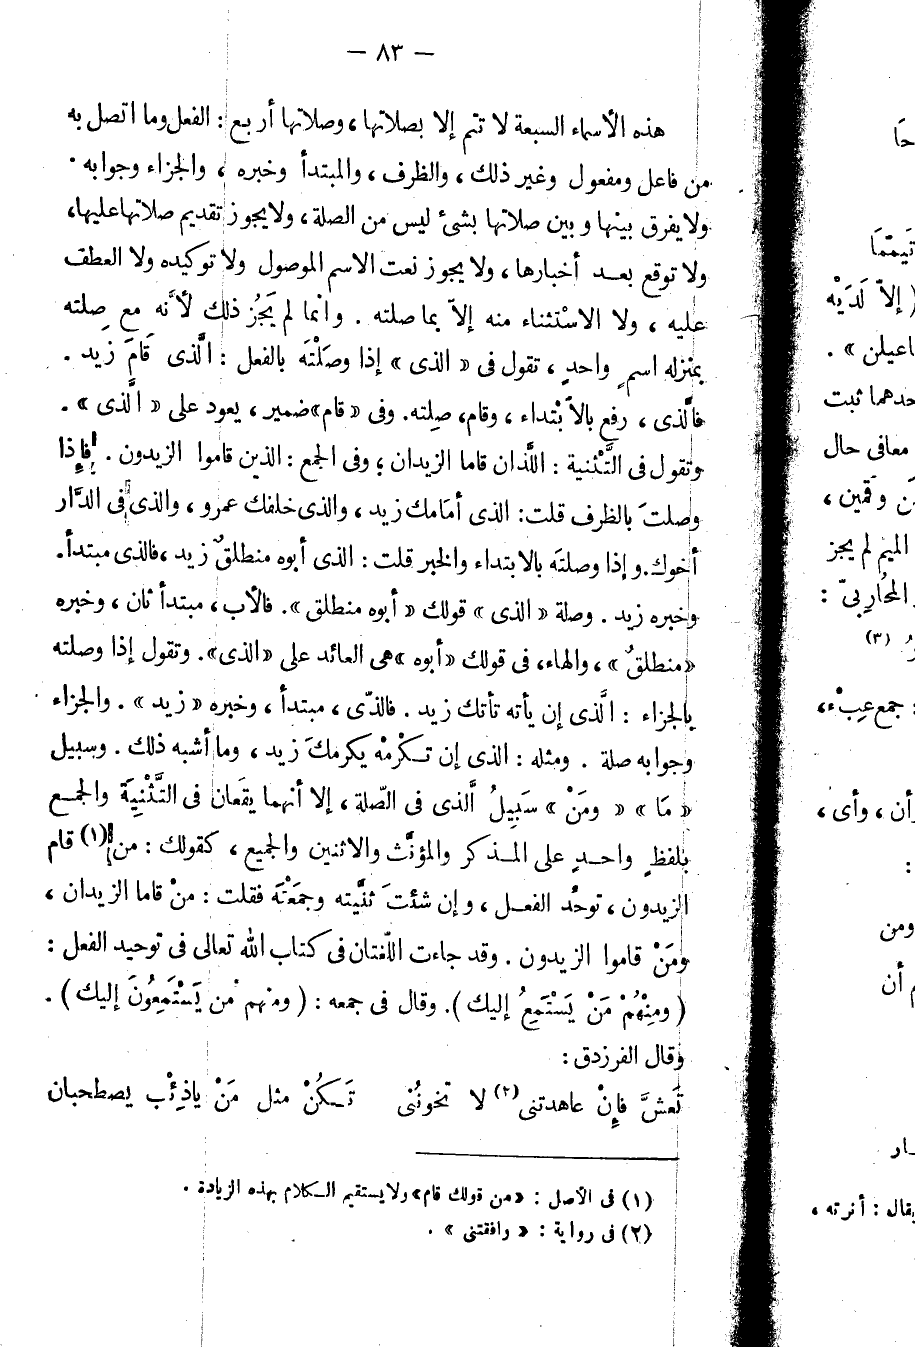 — ٨٣ —
هذه الأسماء السبعة لا تتم إلا بصلاتها ، وصلاتها أربع : الفعل وما اتصل به
من فاعل ومفعول وغير ذلك ، والظرف ، والمبتدأ وخبره ، والجزاء وجوابه .
ولا يفرق بينها وبين صلاتها بشئ ليس من الصلة ، ولا يجوز تقديم صلاتها عليها ،
ولا توقع بعد أخبارها ، ولا يجوز نعت الاسم الموصول ولا توكيده ولا العطف
عليه ، ولا الاسْتثناء منه إلاّ بما صلته . وانما لم يَجُز ذلك لأنَّه مع صِلته
بمنزله اسمٍ واحدٍ ، تقول فى « الذى » إذا وصَلْتَه بالفعل : الَّذى قَامَ زيد .
فالَّذى ، رفع بالاْبتداء ، وقام، صِلته. وفى « قام» ضمير ، يعود على « الَّذى » .
وتقول فى التَّثنية : اللَّذان قاما الزيدان ؛ وفى الجمع : الذين قاموا الزيدون . فإذا
وصلتَ بالظرف قلت: الذى أمَامك زيد ، والذى خلفك عمرو ، والذى فى الدَّار
أخوك. وإذا وصلتَه بالابتداء والخبر قلت : الذى أبوه منطلقٌ زيد ، فالذى مبتدأ.
وخبره زيد . وصلة « الذى » قولك « أبوه منطلق ». فالأب ، مبتدأ ثان ، وخبره
« منطلقٌ » ، والهاء، فى قولك « أبوه » هى العائد على «الذى». وتقول إذا وصلته
بالجزاء : الَّذى إن يأته تأتك زيد . فالذّى ، مبتدأ ، وخبره « زيد » . والجزاء
وجوابه صلة . ومثله : الذى إن تكْرمْه يكرمكَ زيد ، وما أشبه ذلك . وسبيل
« مَا » « ومَنْ » سَبِيلُ الَّذى فى الصّلة ، إلا أنهما يقَعان فى التَّثْنِيَة والجمع
بلفظٍ واحدٍ على المذكر والمؤنَّث والاثنين والجميع ، كقولك : من(١) قام
الزيدون ، توحِّد الفعل ، وإن شئتَ ثنَّيته وجمَعْتَه فقلت : منْ قاما الزيدان ،
ومَنْ قاموا الزيدون . وقد جاءت اللّغتان فى كتاب الله تعالى فى توحيد الفعل :
( ومِنْهُمْ مَنْ يَسْتَمِعُ إليك ). وقال فى جمعه : ( ومنهم من يَسْتَمِعُونَ إليك ) .
وقال الفرزدق :
تَعشَّ فإِنْ عاهدتنى(٢) لا تخونُنى تَكُنْ مثل مَنْ ياذِئْب يصطحبان
(١) فى الأصل : « من قولك قام» ولايستقيم الكلام بهذه الزيادة .
(٢) فى رواية : « وافقتنى » .
تَيممَّا
( إلاّ لَدَيْه
اعيلن » .
حدهما ثبت
معافى حال
وقمين ،
الميم لم يجز
المحُاربىّ :
(٣)
: جمع عِبْء،
أن ، وأى ،
:
ومن
أن
ـار
يقال : أنرته ،